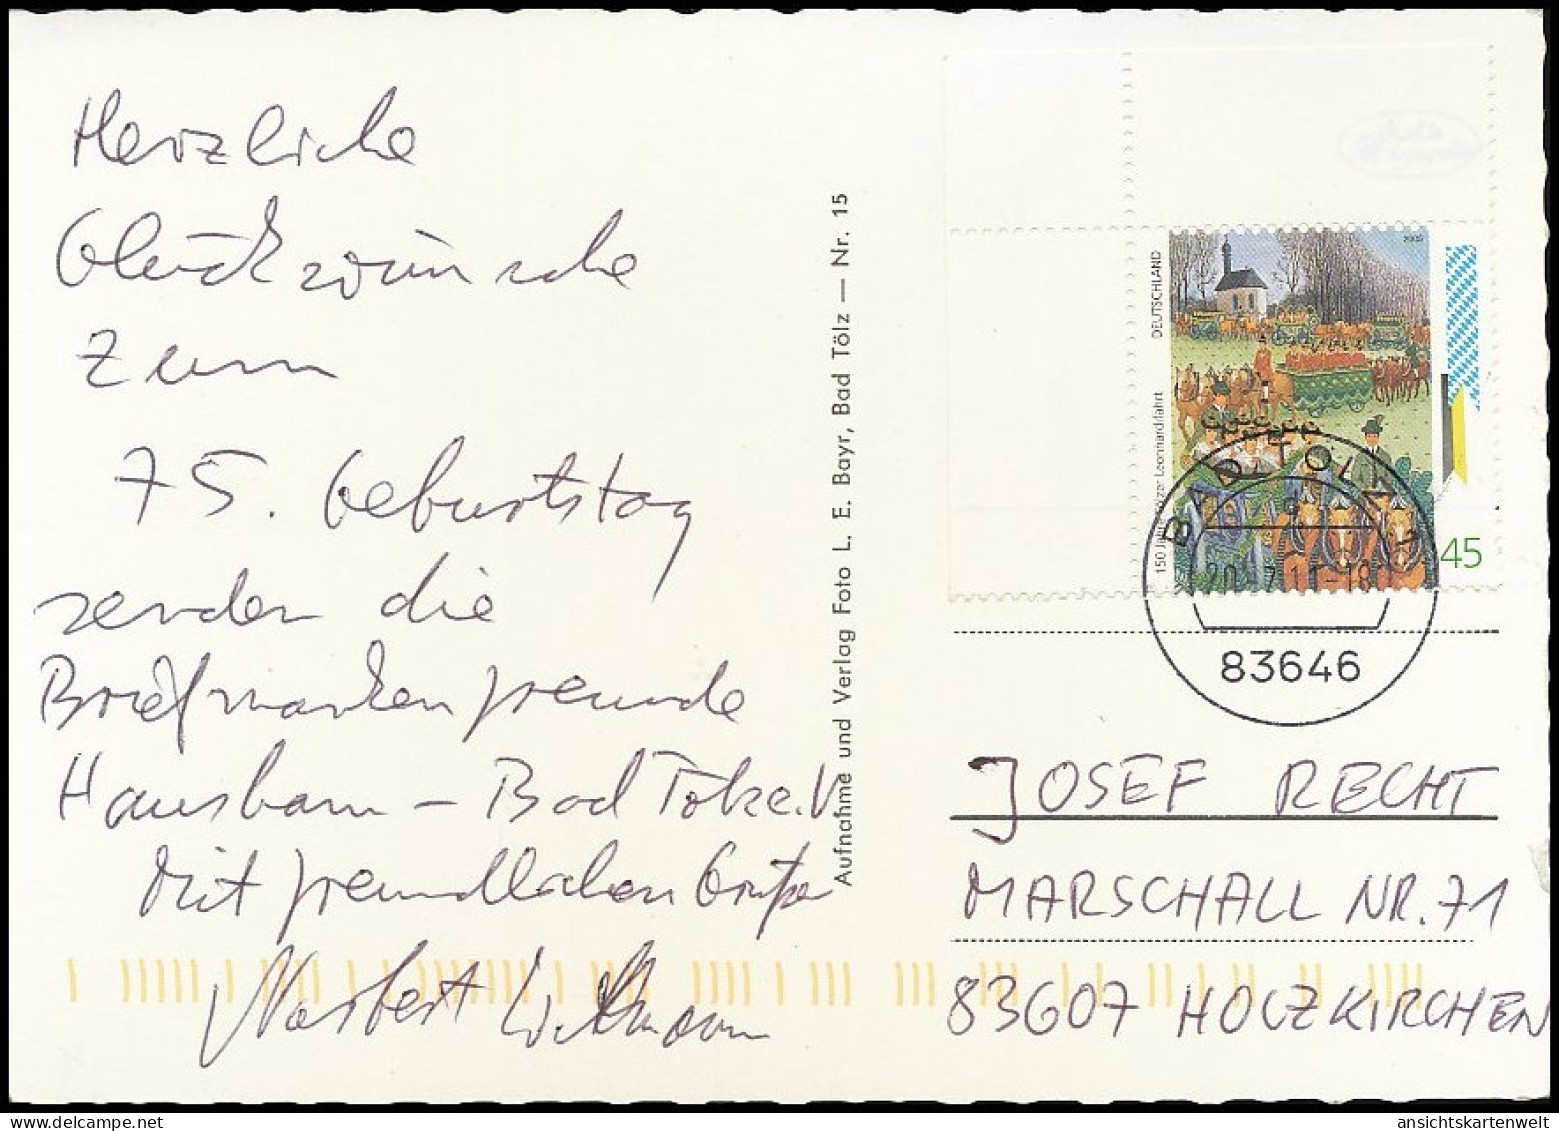 Herzliche
Glückwünsche
zum
75. Geburtstag
senden die
Briefmarkenfreunde
Hausham - Bad Tölz e.V.
Mit freundlichen Grüßen
Norbert
Aufnahme und Verlag Foto L. E. Bayr, Bad Tölz — Nr. 15
DEUTSCHLAND
150 Jahre Tölzer Leonhardifahrt
2005
45
BAD TÖLZ 1
83646
JOSEF RECHT
MARSCHALL NR. 71
83607 HOLZKIRCHEN
ansichtskartenwelt